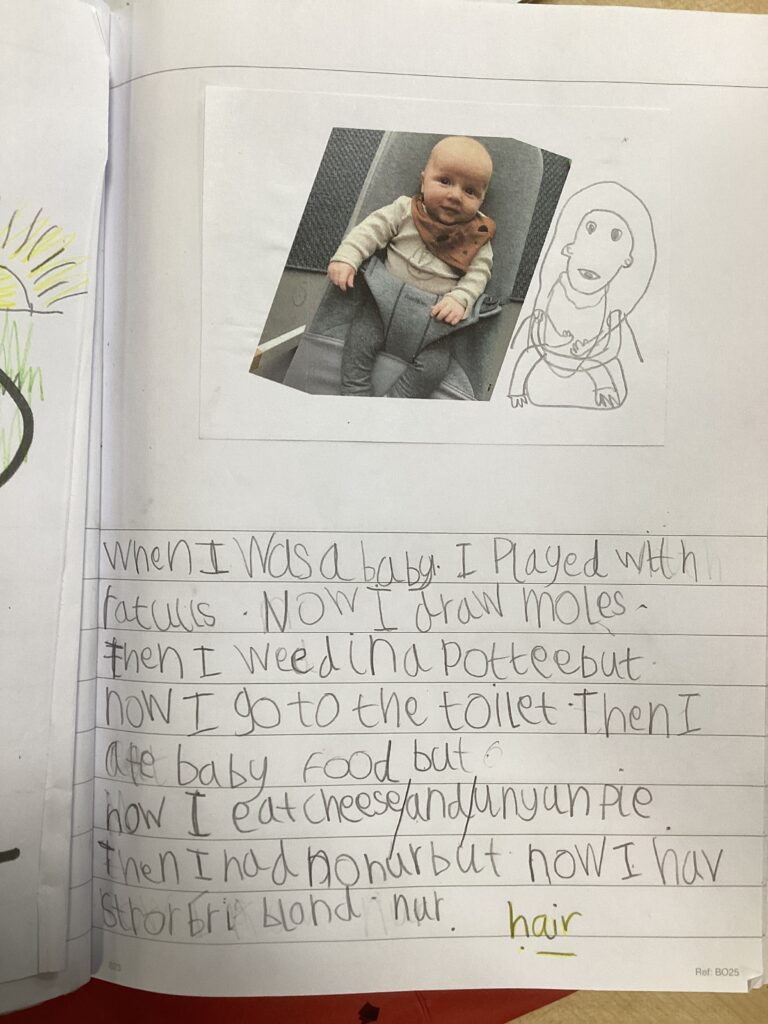 when I was a baby. I Played with
ratulls. Now I draw moles.
then I weed in a pottee but
now I go to the toilet. Then I
ate baby food but
now I eat cheese/and/unyun pie.
Then I had no nur but now I hav
strorbri blond nur.
hair
623
Ref: BO25